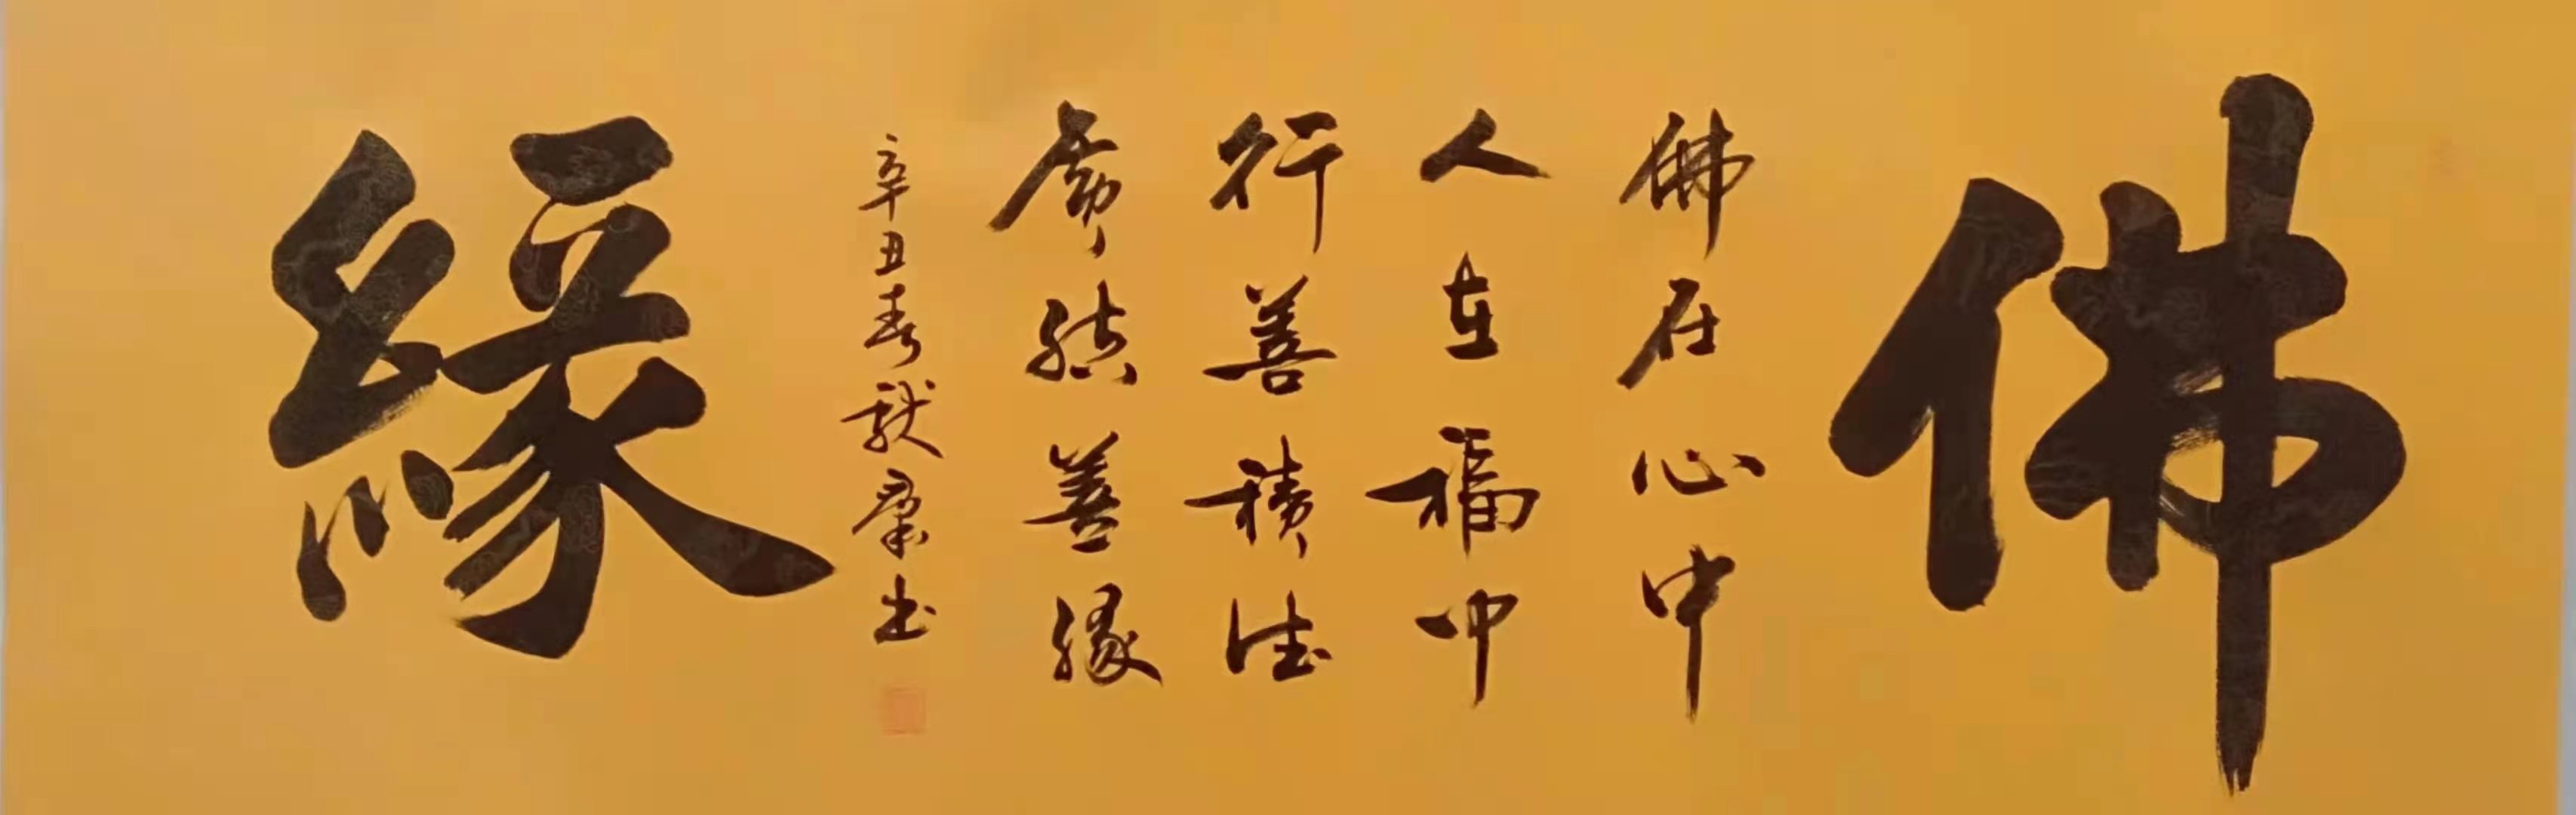 佛
佛在心中
人在福中
行善積德
廣結善緣
辛丑春獻康书
緣